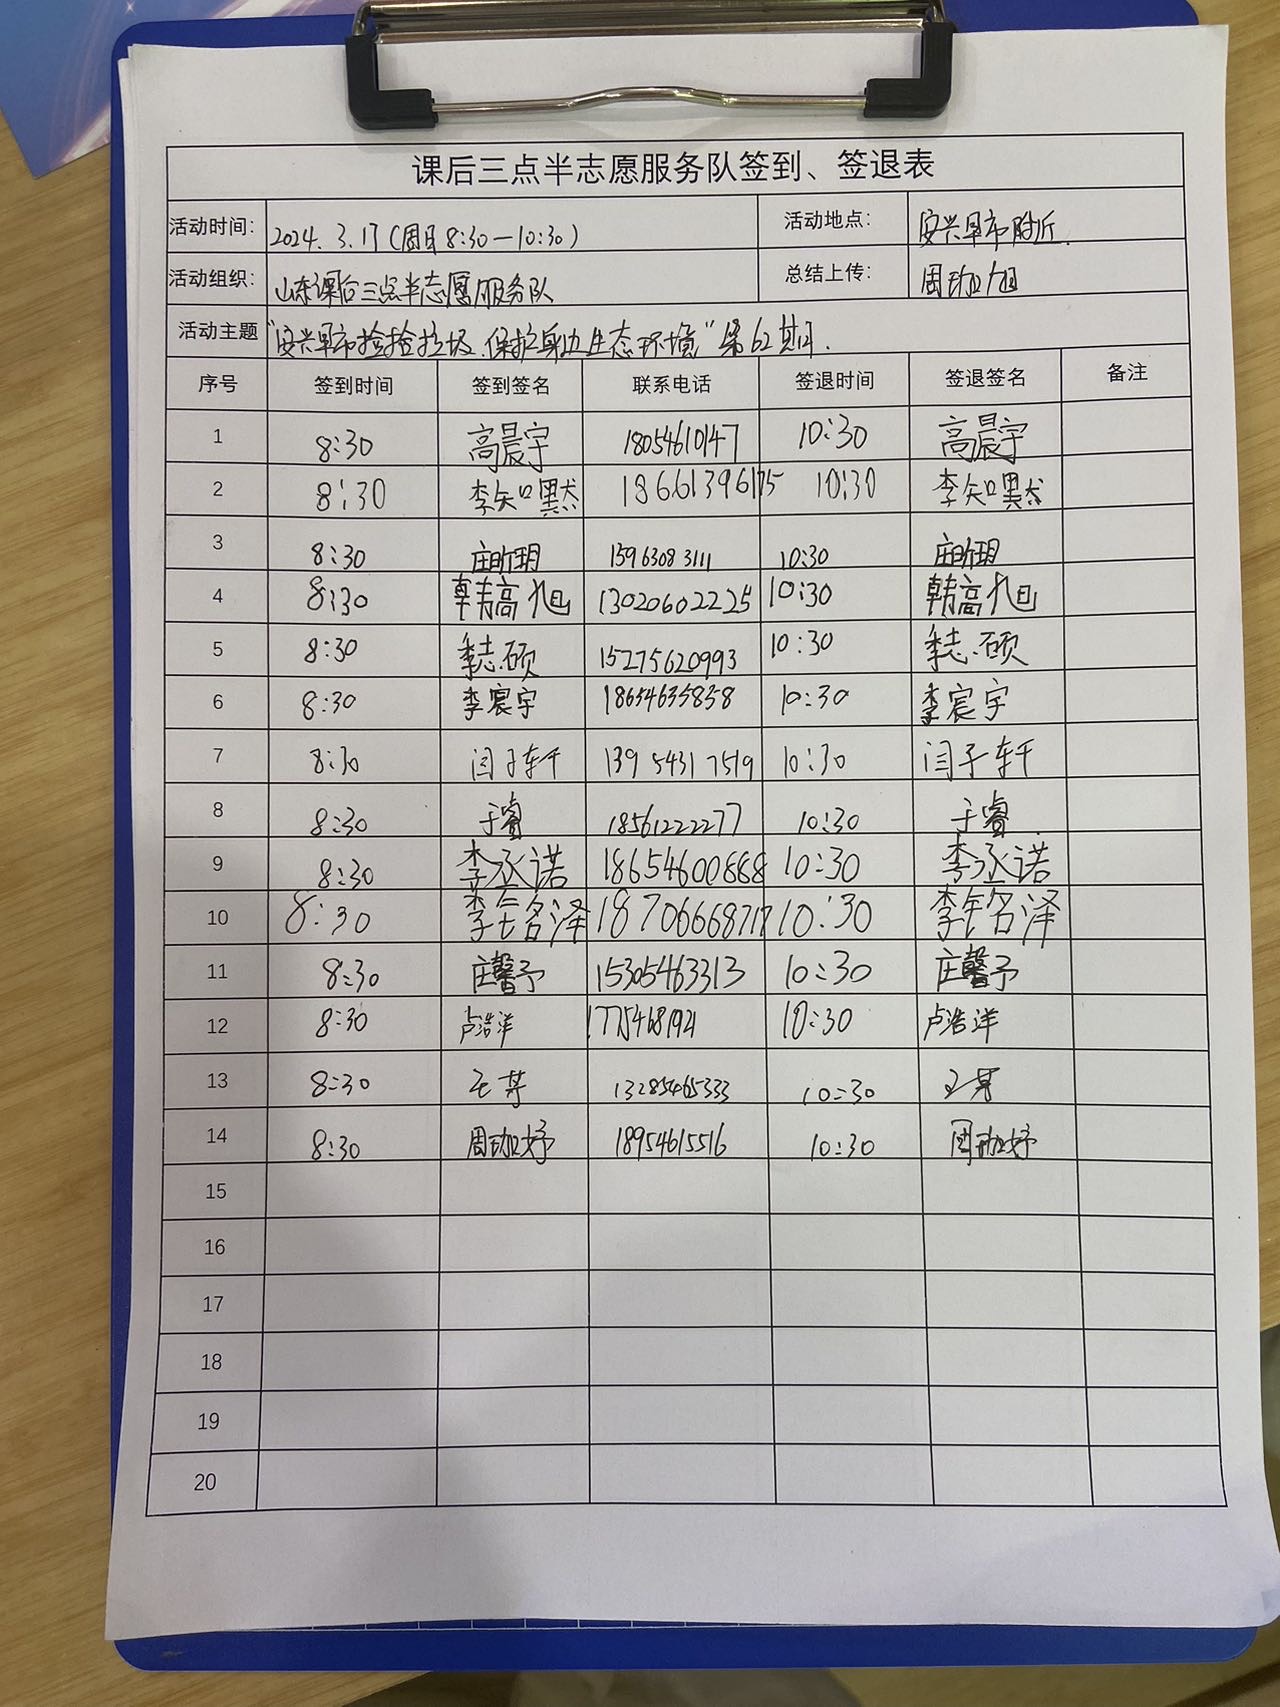 课后三点半志愿服务队签到、签退表
活动时间: 2024.3.17(周日8:30—10:30) 活动地点: 安兴早市附近.
活动组织: 山东课后三点半志愿服务队 总结上传: 周珈旭
活动主题 "安兴早市捡捡垃圾.保护身边生态环境"第62期.
序号 签到时间 签到签名 联系电话 签退时间 签退签名 备注
1 8:30 高晨宇 18054610147 10:30 高晨宇
2 8:30 李知默 18661396175 10:30 李知默
3 8:30 庄昕玥 15963083111 10:30 庄昕玥
4 8:30 韩高旭 13020602225 10:30 韩高旭
5 8:30 季志硕 15275620993 10:30 季志硕
6 8:30 李宸宇 18654635838 10:30 李宸宇
7 8:30 闫子轩 13954317519 10:30 闫子轩
8 8:30 于睿 18561222277 10:30 于睿
9 8:30 李丞诺 18654600888 10:30 李丞诺
10 8:30 李铭泽 18706668717 10:30 李铭泽
11 8:30 庄馨予 15305463313 10:30 庄馨予
12 8:30 卢浩洋 17754681921 10:30 卢浩洋
13 8:30 13285465333 10:30
14 8:30 周珈妤 18954615516 10:30 周珈妤
15
16
17
18
19
20